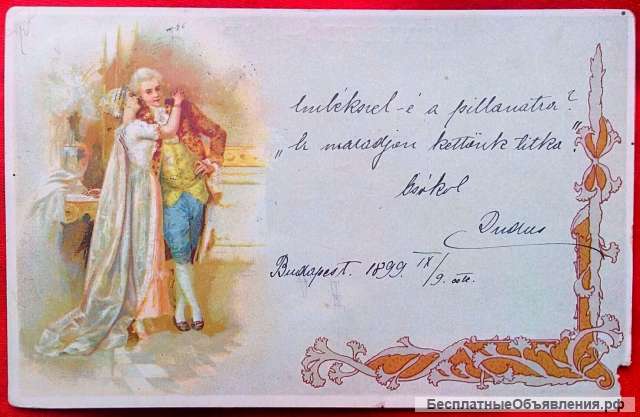 Emlékszel-é a pillanatra?
„Ez maradjon kettőnk titka."
Csókol
Budapest. 1899. IX/9. este.
БесплатныеОбъявления.рф